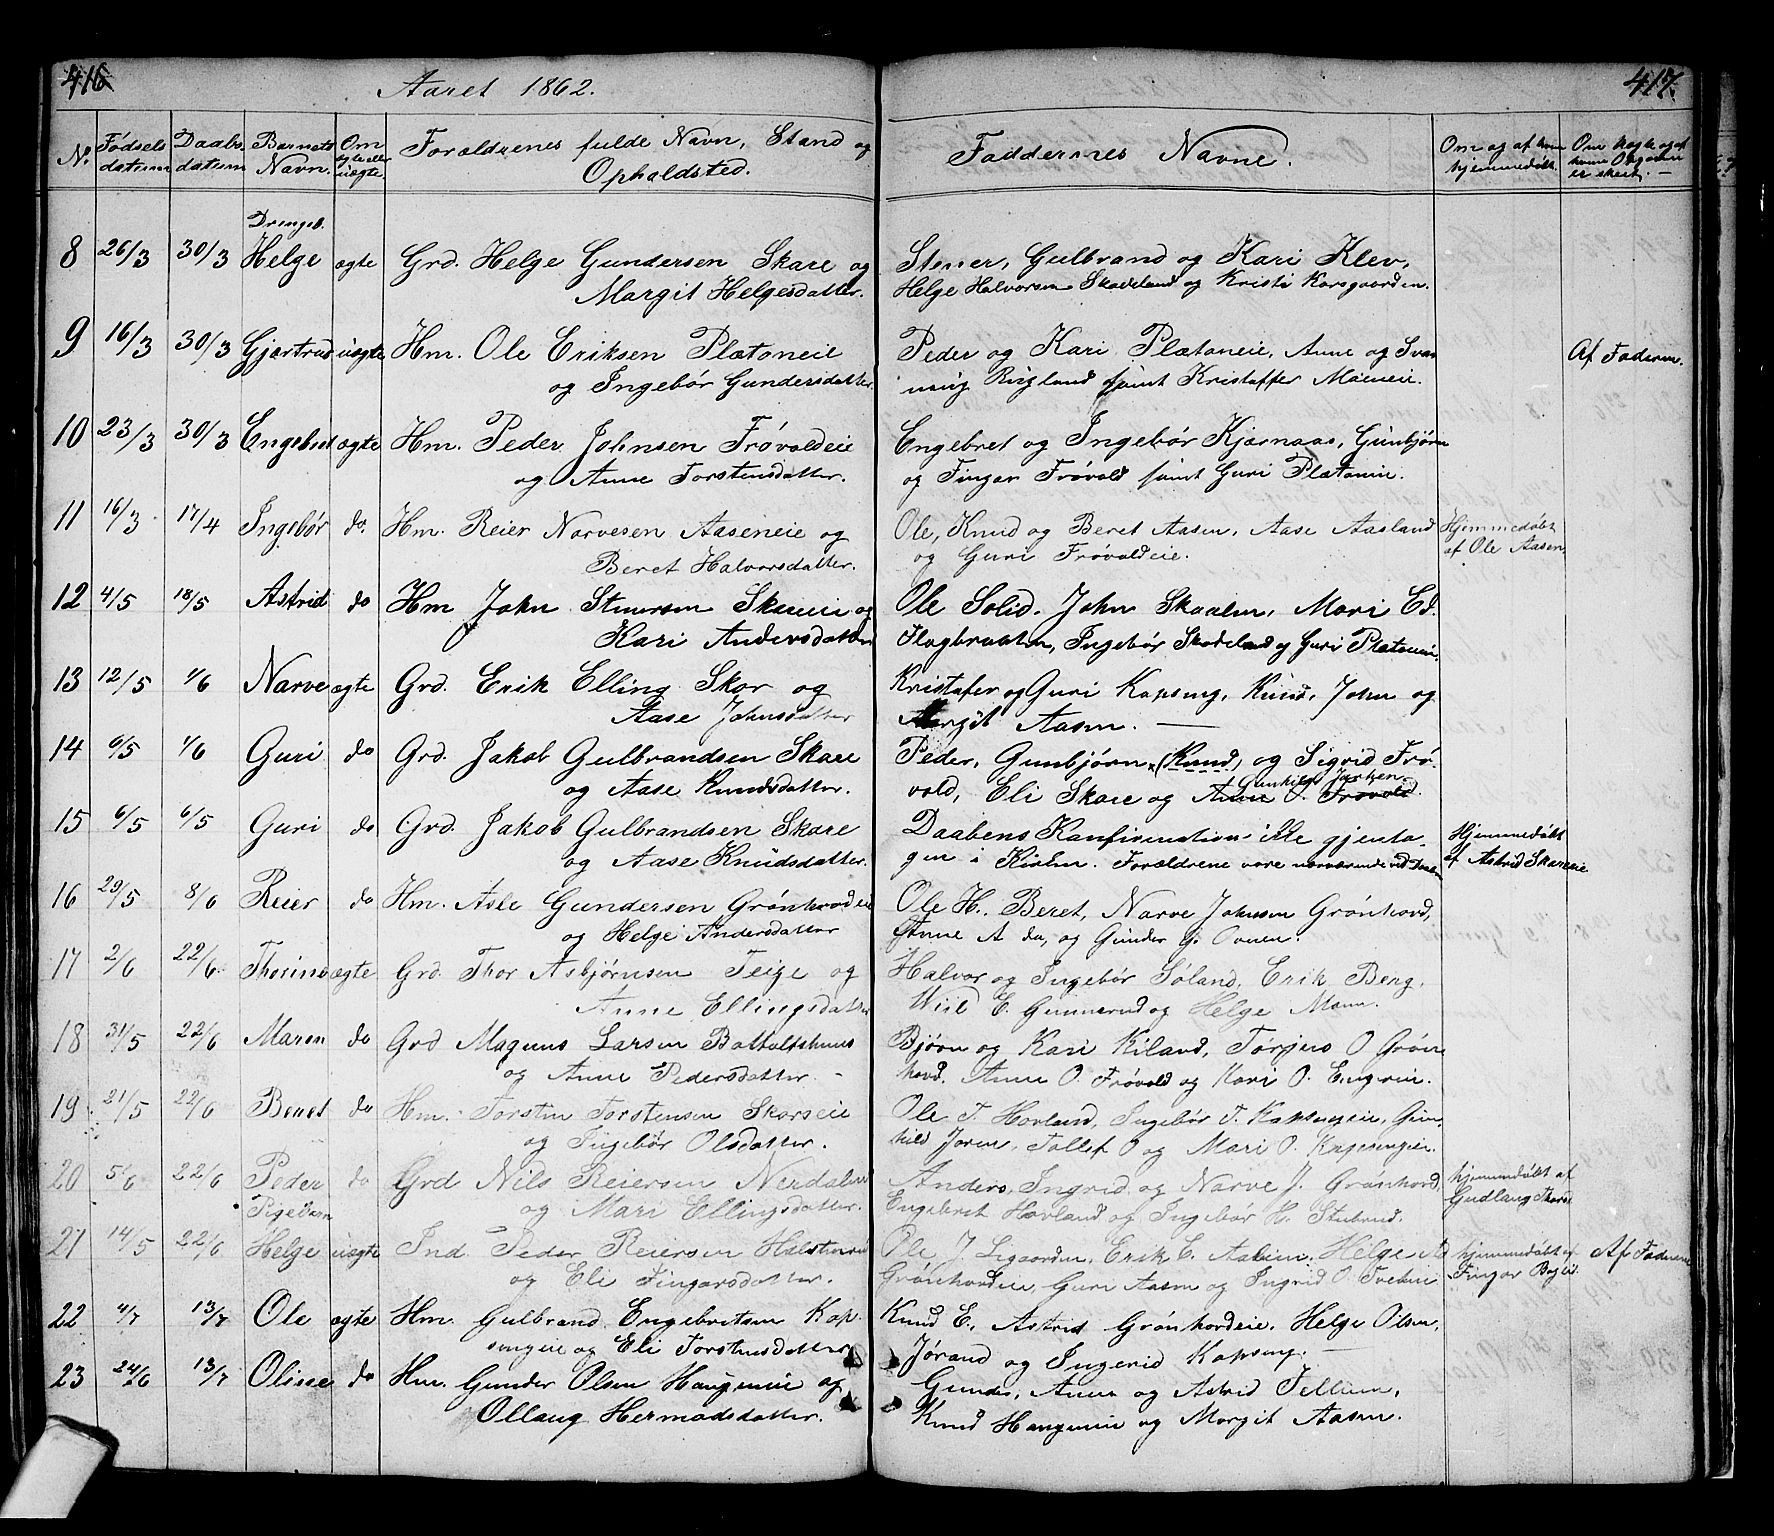 416
Aaret 1862.
417.
No.
Fødsels datum
Daabs datum
Barnets Navn.
Om ægte eller uægte
Forældrenes fulde Navn, Stand og Opholdsted.
Faddernes Navne.
Om og af hvem hjemmedøbt.
er skeet. —
Drengeb.
8 26/3 30/3 Helge ægte Grd. Helge Gundersen Skare og Stener, Gulbrand og Kari Klev,
Margit Helgesdatter. Helge Halvorsen Skadeland og Kristi Korsgaarden.
9 16/3 30/3 Gjertrud uægte Hm. Ole Eriksen Plætoneie Peder og Kari Plætoneie, Anne og Svan Af Faderen.
og Ingebør Gundersdatter. Rugland samt Kristaffer Moeneie.
10 23/3 30/3 Engebret ægte Hm. Peder Johnsen Frøvoldeie Engebret og Ingebør Kjærnaas, Gunbjørn
og Anne Torstensdatter. og Fingar Frøvold samt Guri Plætonein.
11 16/3 17/4 Ingebør do. Hm. Reier Narvesen Aaseneie og Ole, Knud og Beret Aasen, Aase Aasland Hjemmedøbt
Beret Halvorsdatter. og Guri Frøvoldeie. af Ole Aasen
12 4/5 18/5 Astrid do Hm John Stenersen Skareie og Ole Solid, John Skaalen, Mari Ed.
Kari Andersdatter Flagbraaten, Ingebør Skadeland og Guri Plætonein.
13 12/5 1/6 Narve ægte Grd. Erik Elling Skar og Kristafer og Guri Kapseng, Knud, John og
Aase Johnsdatter Margit Aasen. —
14 6/5 1/6 Guri do Grd. Jakob Gulbrandsen Skare Peder, Gunbjørn (Knud) og Sigrid Frø-
og Aase Knudsdatter. vold, Eli Skare og Anne O. Frøvold.
15 6/5 6/5 Guri do Grd. Jakob Gulbrandsen Skare Daabens Konfirmation ikke gjenta- Hjemmedøbt
og Aase Knudsdatter. gen i Kirken. Forældrene vare nærværende ved af Astrid Skareeie
16 29/5 8/6 Reier do Hm. Asle Gundersen Grønhovdeie Ole H., Beret, Narve Johnsen Grønhovd,
og Helge Andersdatter Anne A do, og Gunder G. Ovnen.
17 2/6 22/6 Thorine ægte Grd. Thor Asbjørnsen Teige og Halvor og Ingebør Søland, Erik Berg,
Anne Ellingsdatter E. Gunnerud og Helge Moen.
18 31/5 22/6 Maren do Grd Magnus Larsen Battoltshuus Bjørn og Kari Kiland, Torjus O Grøn-
og Anne Pedersdatter. - hovd, Anne O. Frøvold og Kari O. Engerein.
19 21/5 22/6 Beret do Hm. Torsten Torstensen Skarseie Ole T. Hovland, Ingebør T. Kapsengeie, Gun-
og Ingebør Olsdatter. hild Joren, Tollef O og Mari O. Kapsengein.
20 5/6 22/6 Peder do Grd Nils Reiersen Nerdalen Anders, Ingrid og Narve J. Grønhovd, hjemmedøbt af
og Mari Ellingsdatter. Engebret Hovland og Ingebør H. Stubrud. Gudlaug
Pigebarn
21 14/5 22/6 Helge uægte Ind. Peder Reiersen Ole J. Ligaarden, Erik E. Helge A hjemmedøbt af Af Faderen
og Eli Fingarsdatter. Grønhovdeie, Guri Aasen og Ingrid O Tveteie Fingar
22 4/7 13/7 Ole ægte Hm. Gulbrand Engebretsen Kap- Knud E. Astrid Grønhovdeie. Helge Olsen,
sengeie og Eli Torstensdatter Jørand og Ingerid Kapseng. —
23 24/6 13/7 Oline do Hm. Gunder Olsen Haugeneie og Gunder, Anne og Astrid
Ollaug Hermodsdatter. Knud Haugeneie og Margit Aasen.